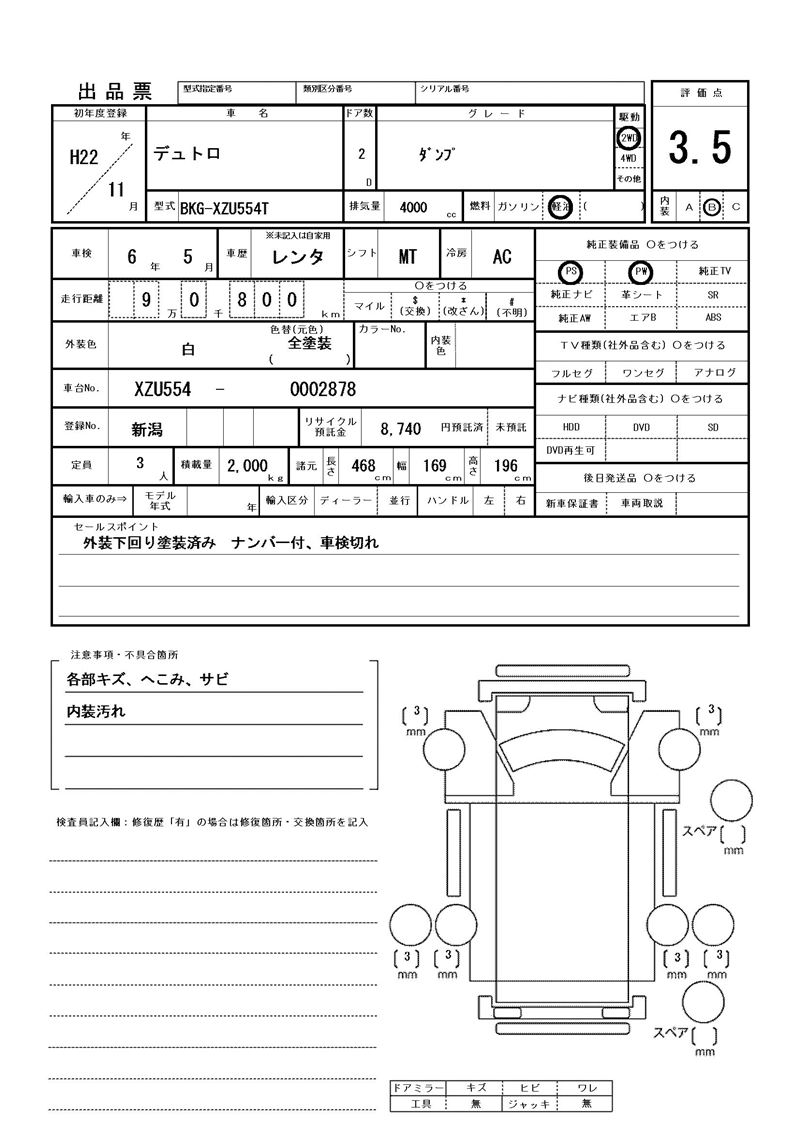 出品票
型式指定番号 類別区分番号 シリアル番号
評価点
3.5
初年度登録 車名 ドア数 グレード 駆動
H22 年 11 月 デュトロ 2 D ﾀﾞﾝﾌﾟ 2WD
4WD
その他
型式 BKG-XZU554T 排気量 4000 cc 燃料 ガソリン 軽油 ( )
内装 A B C
車検 6 年 5 月 車歴 ※未記入は自家用 レンタ シフト MT 冷房 AC
純正装備品 〇をつける
PS PW 純正TV
純正ナビ 革シート SR
純正AW エアB ABS
走行距離 9 万 0 千 8 0 0 km
〇をつける
マイル $(交換) *(改ざん) #(不明)
外装色 白 色替(元色) 全塗装 ( ) カラーNo. 内装色
TV種類(社外品含む) 〇をつける
フルセグ ワンセグ アナログ
車台No. XZU554 － 0002878
ナビ種類(社外品含む) 〇をつける
HDD DVD SD
DVD再生可
登録No. 新潟 リサイクル預託金 8,740 円預託済 未預託
定員 3 人 積載量 2,000 kg 諸元 長さ 468 cm 幅 169 cm 高さ 196 cm
後日発送品 〇をつける
新車保証書 車両取説
輸入車のみ⇒ モデル年式 年 輸入区分 ディーラー 並行 ハンドル 左 右
セールスポイント
外装下回り塗装済み ナンバー付、車検切れ
注意事項・不具合箇所
各部キズ、へこみ、サビ
内装汚れ
検査員記入欄：修復歴「有」の場合は修復箇所・交換箇所を記入
[3] mm [3] mm
スペア[ ] mm
[3] mm [3] mm [3] mm [3] mm
スペア[ ] mm
ドアミラー キズ ヒビ ワレ
工具 無 ジャッキ 無